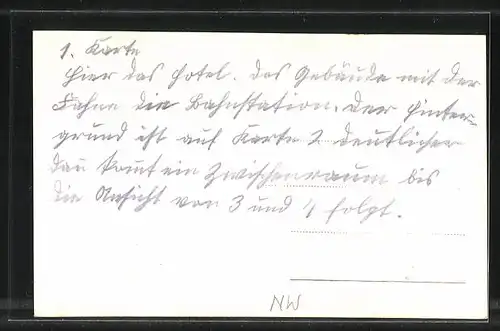 1. Karte
Hier das Hotel. Das Gebäude mit der
Fahne die Bahnstation. Der Hinter-
grund ist auf Karte 2 deutlicher
dan komt ein Zwischenraum bis
die Ansicht von 3 und 4 folgt.
NW